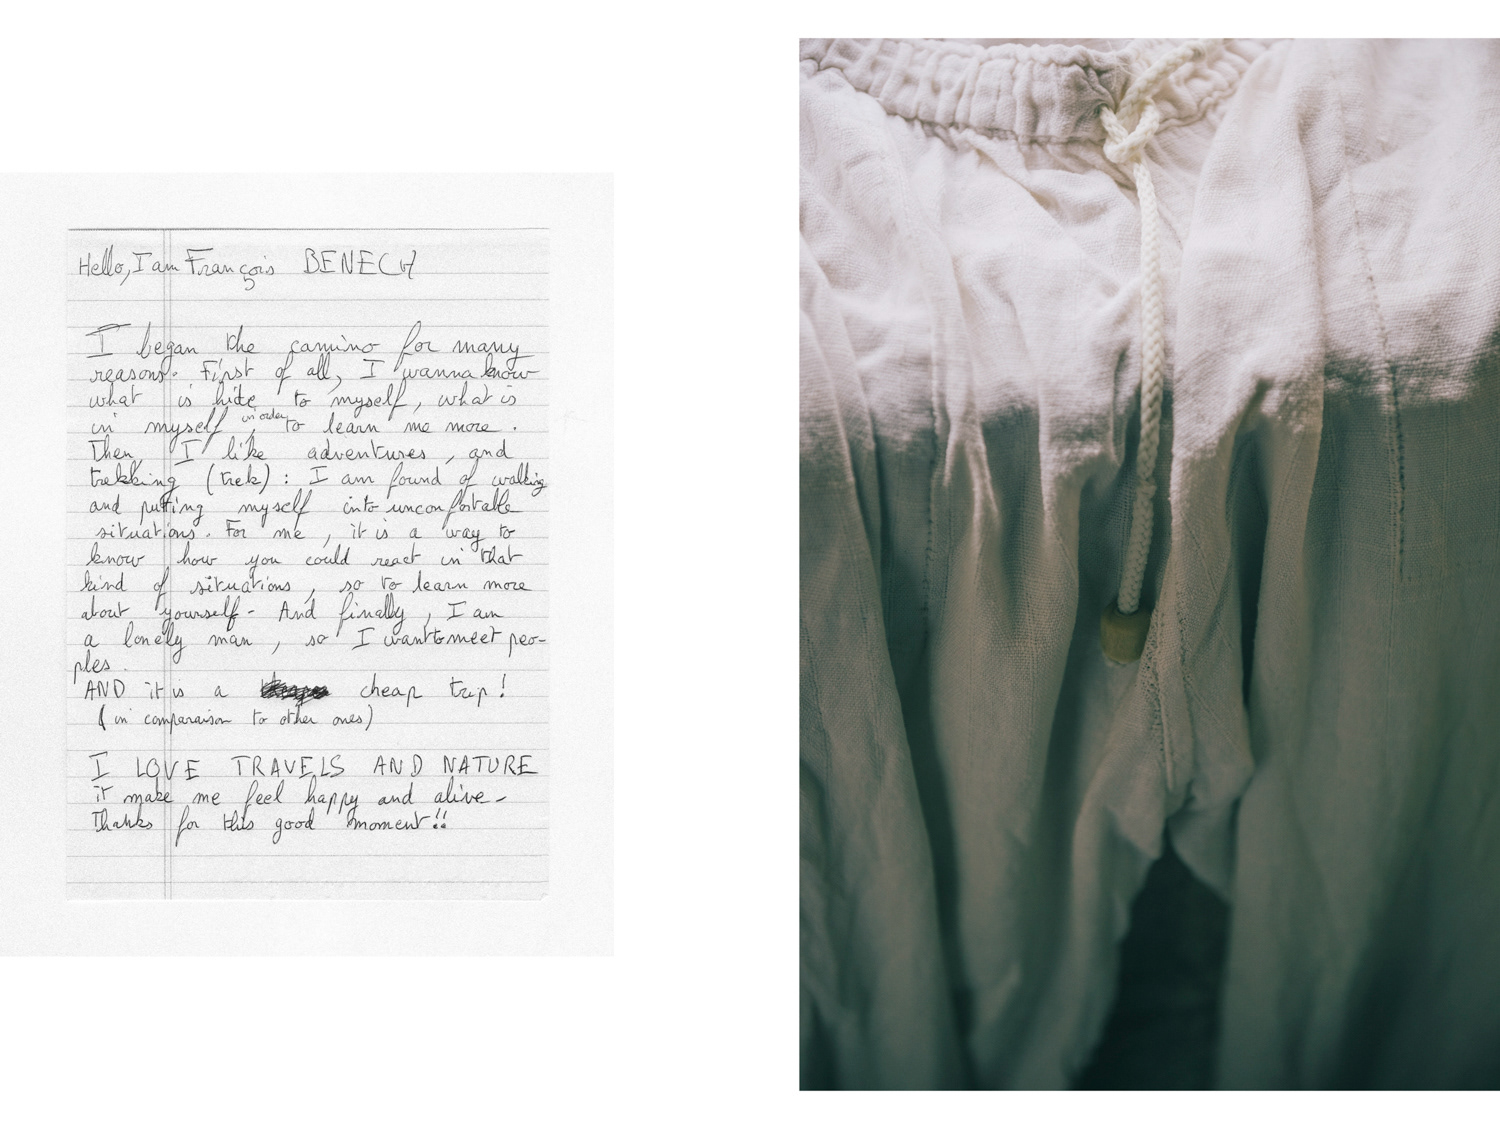 Hello, I am François BENECH
I began the camino for many
reasons. First of all, I wanna know
what is hide to myself, what is
in myself, in order to learn me more.
Then, I like adventures, and
trekking (trek) : I am found of walking
and putting myself into unconfortable
situations. For me, it is a way to
know how you could react in that
kind of situations, so to learn more
about yourself. And finally, I am
a lonely man, so I want to meet peo-
ples.
AND it is a cheap trip!
(in comparaison to other ones)
I LOVE TRAVELS AND NATURE
it make me feel happy and alive.
Thanks for this good moment!!